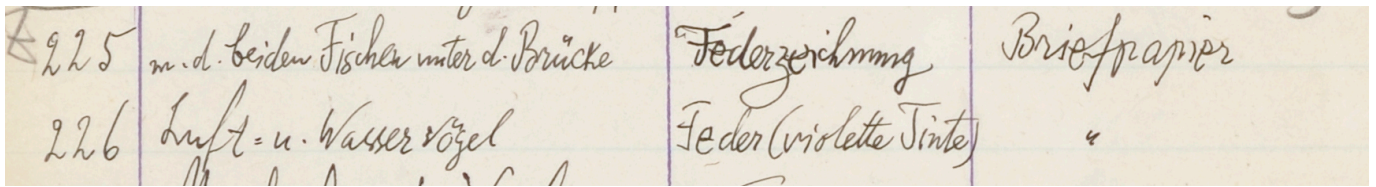 225 m. d. beiden Fischen unter d. Brücke Federzeichnung Briefpapier
226 Luft= u. Wasservögel Feder (violette Tinte) "